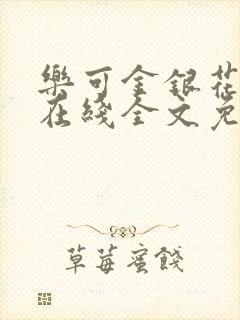 樂可金銀花
在綫全文免
草莓蜜餞